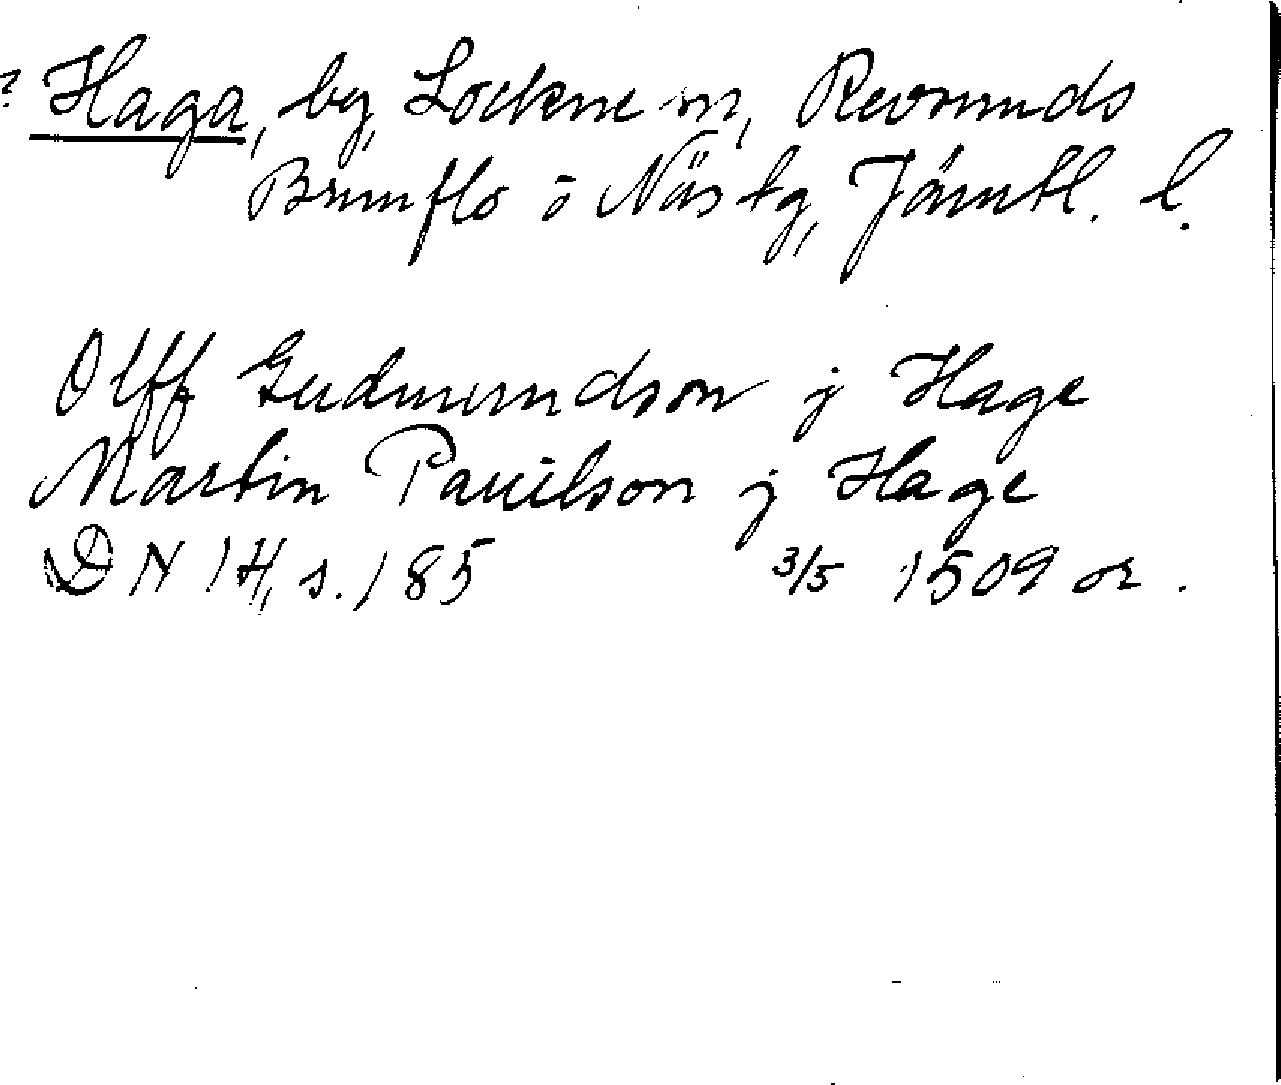 ? Haga, by, Lockne sn, Revsunds
Brunflo o Näs tg, Jämtl. l.
Olff Gudmundson j Hage
Martin Pauilson j Hage
DN 14, s. 185 3/5 1509 or.